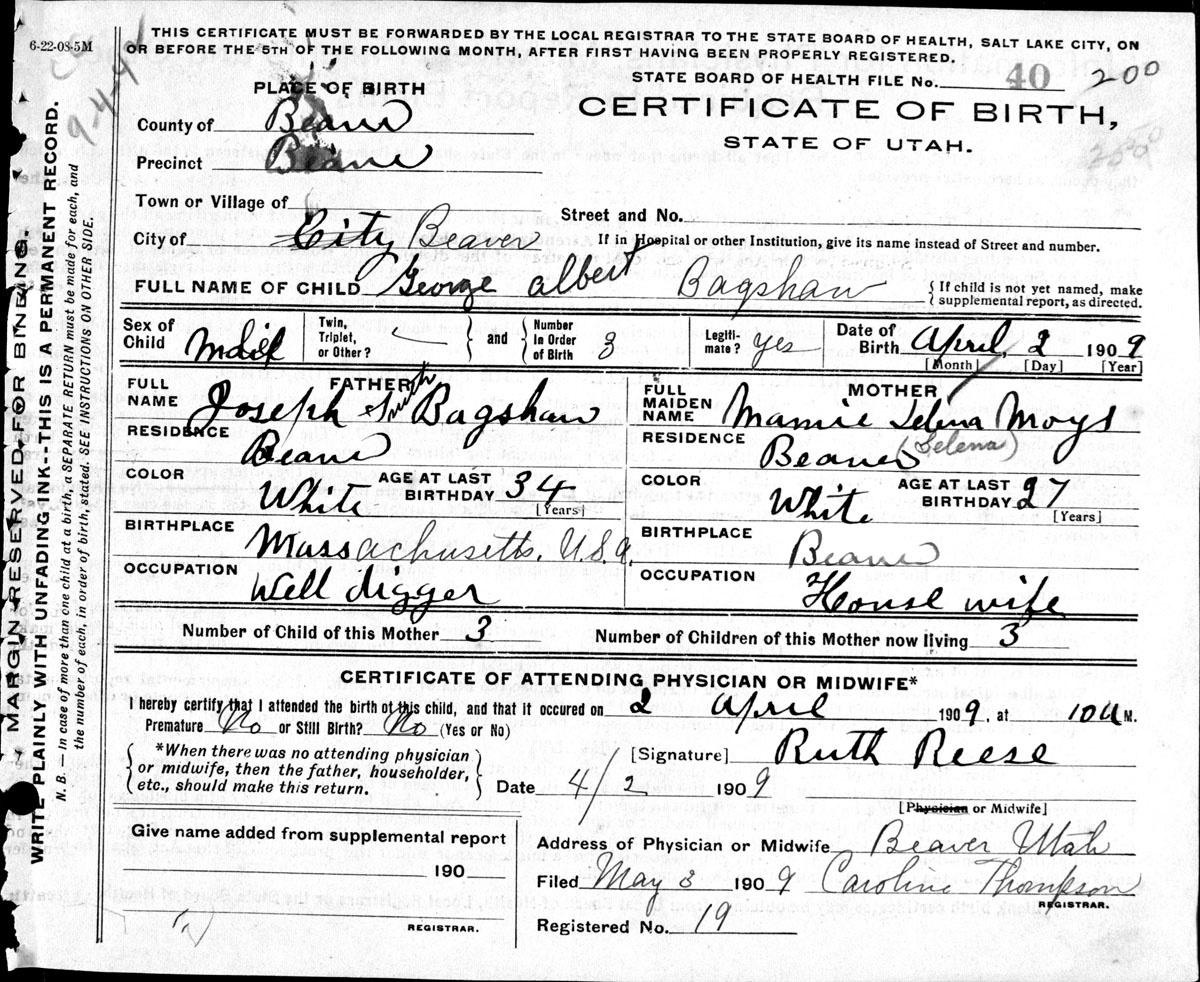 6-22-08-5M
THIS CERTIFICATE MUST BE FORWARDED BY THE LOCAL REGISTRAR TO THE STATE BOARD OF HEALTH, SALT LAKE CITY, ON
OR BEFORE THE 5TH OF THE FOLLOWING MONTH, AFTER FIRST HAVING BEEN PROPERLY REGISTERED.
STATE BOARD OF HEALTH FILE No. 40 200
9-4-4
PLACE OF BIRTH
CERTIFICATE OF BIRTH,
STATE OF UTAH.
County of Beaver
Precinct Beaver
Town or Village of
Street and No.
City of City Beaver
If in Hospital or other Institution, give its name instead of Street and number.
FULL NAME OF CHILD George Albert Bagshaw
{ If child is not yet named, make
supplemental report, as directed.
Sex of Child Male
Twin, Triplet, or Other? and Number in Order of Birth 3
Legiti-mate? Yes
Date of Birth April, 2 1909
[Month] [Day] [Year]
FATHER
FULL NAME Joseph Smith Bagshaw
RESIDENCE Beaver
COLOR White AGE AT LAST BIRTHDAY 34 [Years]
BIRTHPLACE Massachusetts, U.S.A.
OCCUPATION Well digger
MOTHER
FULL MAIDEN NAME Mamie Selena Moys
RESIDENCE Beaver (Selena)
COLOR White AGE AT LAST BIRTHDAY 27 [Years]
BIRTHPLACE Beaver
OCCUPATION House wife
Number of Child of this Mother 3 Number of Children of this Mother now living 3
CERTIFICATE OF ATTENDING PHYSICIAN OR MIDWIFE*
I hereby certify that I attended the birth of this child, and that it occured on 2 April 1909, at 10 a M.
Premature No or Still Birth? No (Yes or No)
*When there was no attending physician
or midwife, then the father, householder,
etc., should make this return.
[Signature] Ruth Reese
Date 4/2 1909
[Physician or Midwife]
Give name added from supplemental report
190
REGISTRAR.
Address of Physician or Midwife Beaver Utah
Filed May 3 1909 Caroline Thompson
REGISTRAR.
Registered No. 19
MARGIN RESERVED FOR BINDING.
WRITE PLAINLY, WITH UNFADING INK--THIS IS A PERMANENT RECORD.
N. B. — In case of more than one child at a birth, a SEPARATE RETURN must be made for each, and
the number of each, in order of birth, stated. SEE INSTRUCTIONS ON OTHER SIDE.